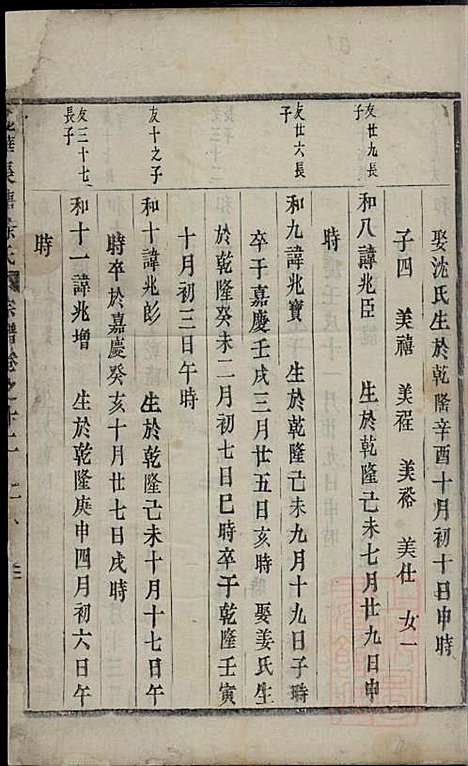 娶沈氏生於乾隆辛酉十月初十日申時
子四 美禧 美程 美裕 美仕 女一
友廿九長子
和八諱兆臣 生於乾隆己未七月廿九日申
時
友廿六長子
和九諱兆寶 生於乾隆己未九月十九日子時
卒于嘉慶壬戌三月廿五日亥時 娶姜氏生
於乾隆癸未二月初七日巳時卒于乾隆壬寅
十月初三日午時
友十之子
和十諱兆彭 生於乾隆己未十月十七日
時卒於嘉慶癸亥十月廿七日戌時
友三十七長子
和十一諱兆增 生於乾隆庚申四月初六日午
時
氏宗譜卷之十二